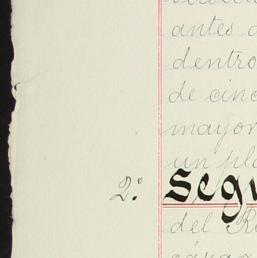 antes
dentro
de cinc
mayor
un pla
2º Segu
del R